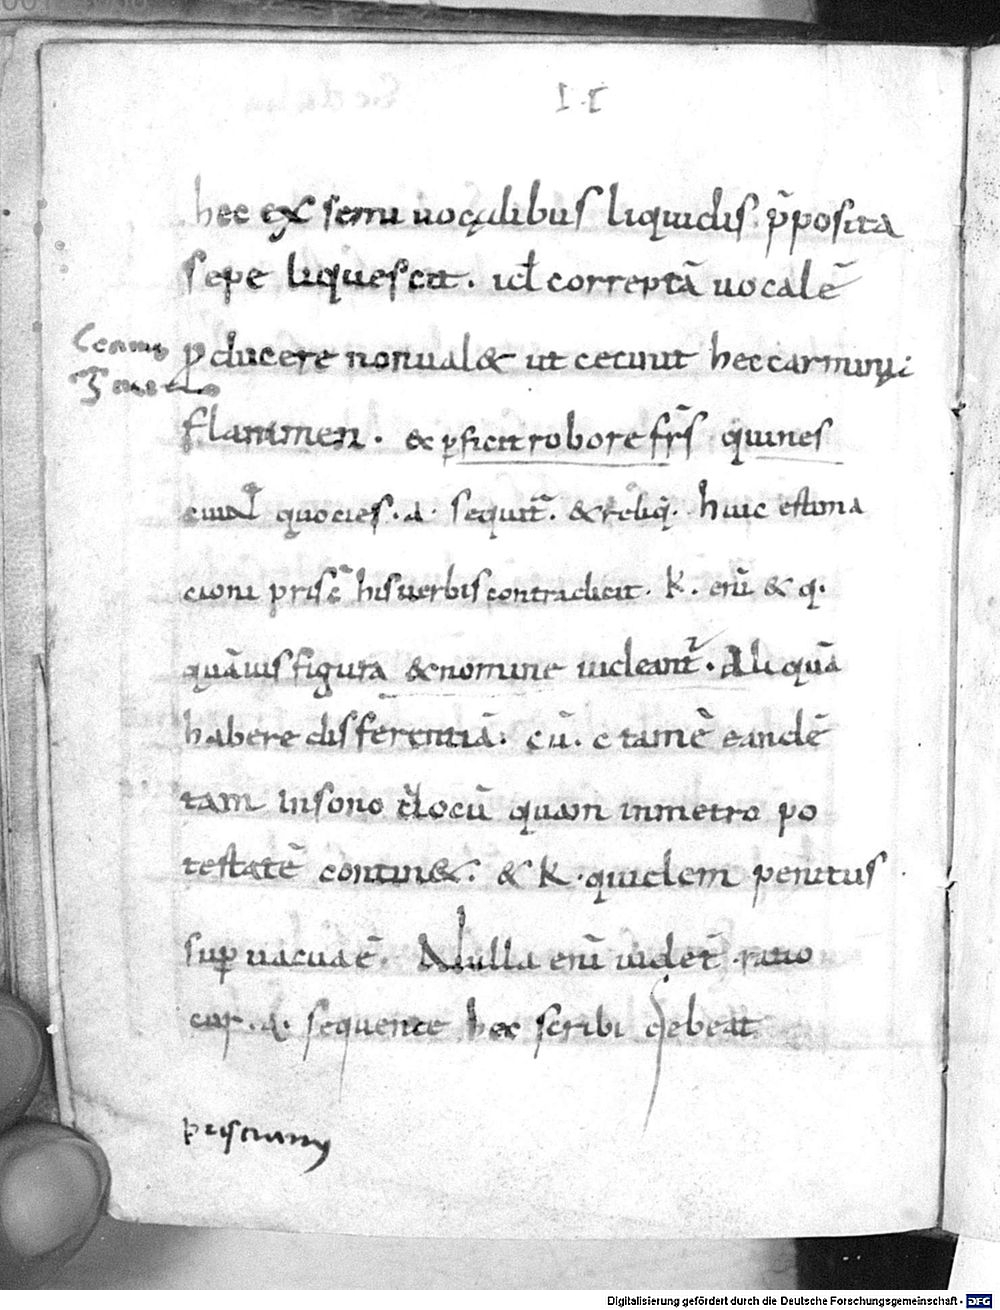 hec ex semi uocalibus liquidis p̄posita
sepe liquescit. id̄ correptā uocalē
ꝓducere non ual& ut cecinit hec carmini
flammen. ex ꝑficit robore fr̄s qui nes
quocies. a. sequit̄. & reliq̄. huic estima
cioni prisc̄ his uerbis contradicit. K. eni̅ & q.
quāuis figura & nomine uideant̄. Aliquā
habere differentiā. cū. c tamē eandē
tam in sono quam in metro po
testatē contin&. & K. quidem penitus
suꝑuacua ē. Nulla eni̅ uidet̄ ratio
cur. a. sequente hec scribi debeat
priscianus
Digitalisierung gefördert durch die Deutsche Forschungsgemeinschaft - DFG